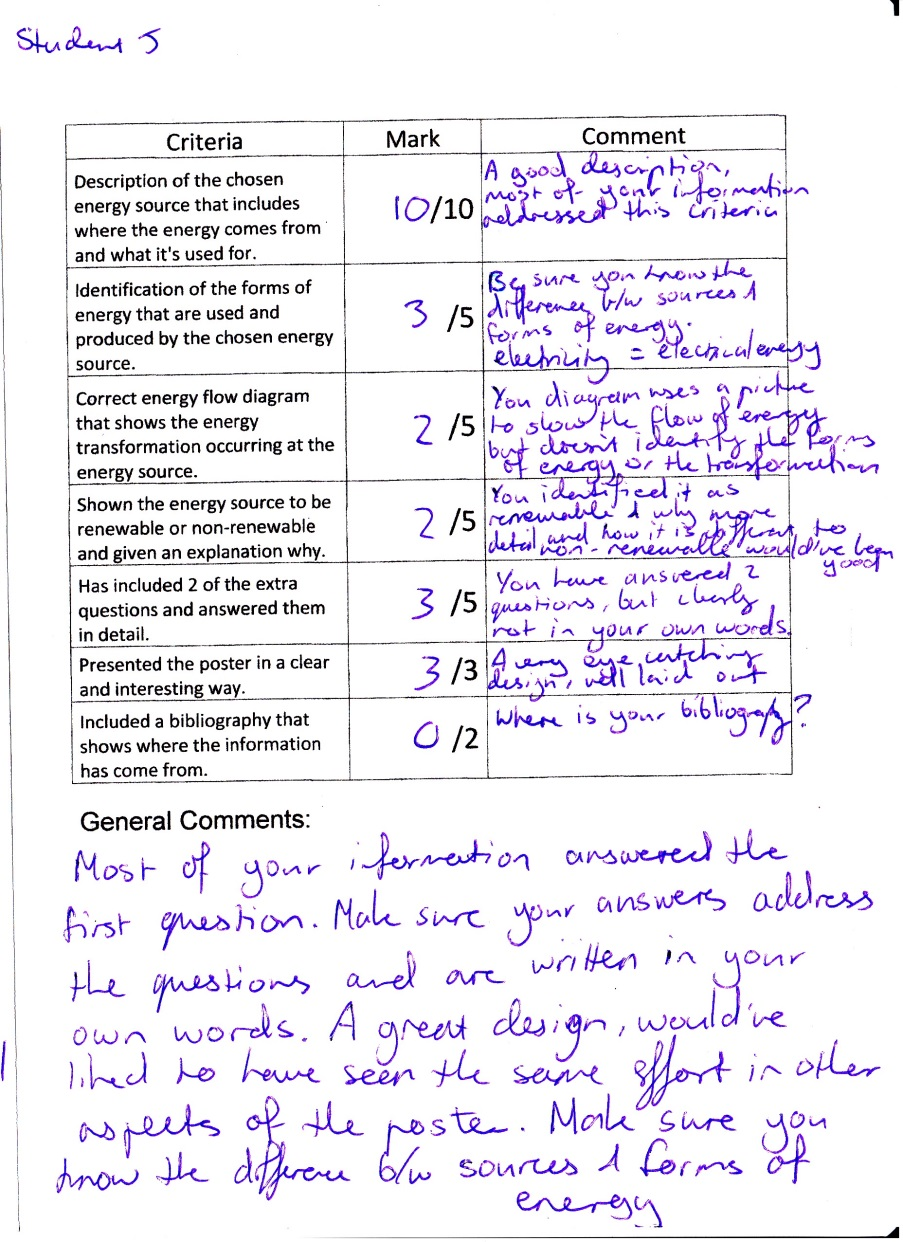 Student 5
Criteria
Mark
Comment
Description of the chosen
energy source that includes
where the energy comes from
and what it's used for.
10/10
A good description,
most of your information
addressed this criteria
Identification of the forms of
energy that are used and
produced by the chosen energy
source.
3 /5
Be sure you know the
difference b/w sources &
forms of energy.
electricity = electrical energy
Correct energy flow diagram
that shows the energy
transformation occurring at the
energy source.
2 /5
You diagram uses a picture
to show the flow of energy
but doesn't identify the forms
of energy or the transformation
Shown the energy source to be
renewable or non-renewable
and given an explanation why.
2 /5
You identified it as
renewable & why more
detail and how it is different to
non-renewable would've been
good
Has included 2 of the extra
questions and answered them
in detail.
3 /5
You have answered 2
questions, but clearly
not in your own words.
Presented the poster in a clear
and interesting way.
3 /3
A very eye catching
design, well laid out
Included a bibliography that
shows where the information
has come from.
0 /2
Where is your bibliography?
General Comments:
Most of your information answered the
first question. Make sure your answers address
the questions and are written in your
own words. A great design, would've
liked to have seen the same effort in other
aspects of the poster. Make sure you
know the difference b/w sources & forms of
energy